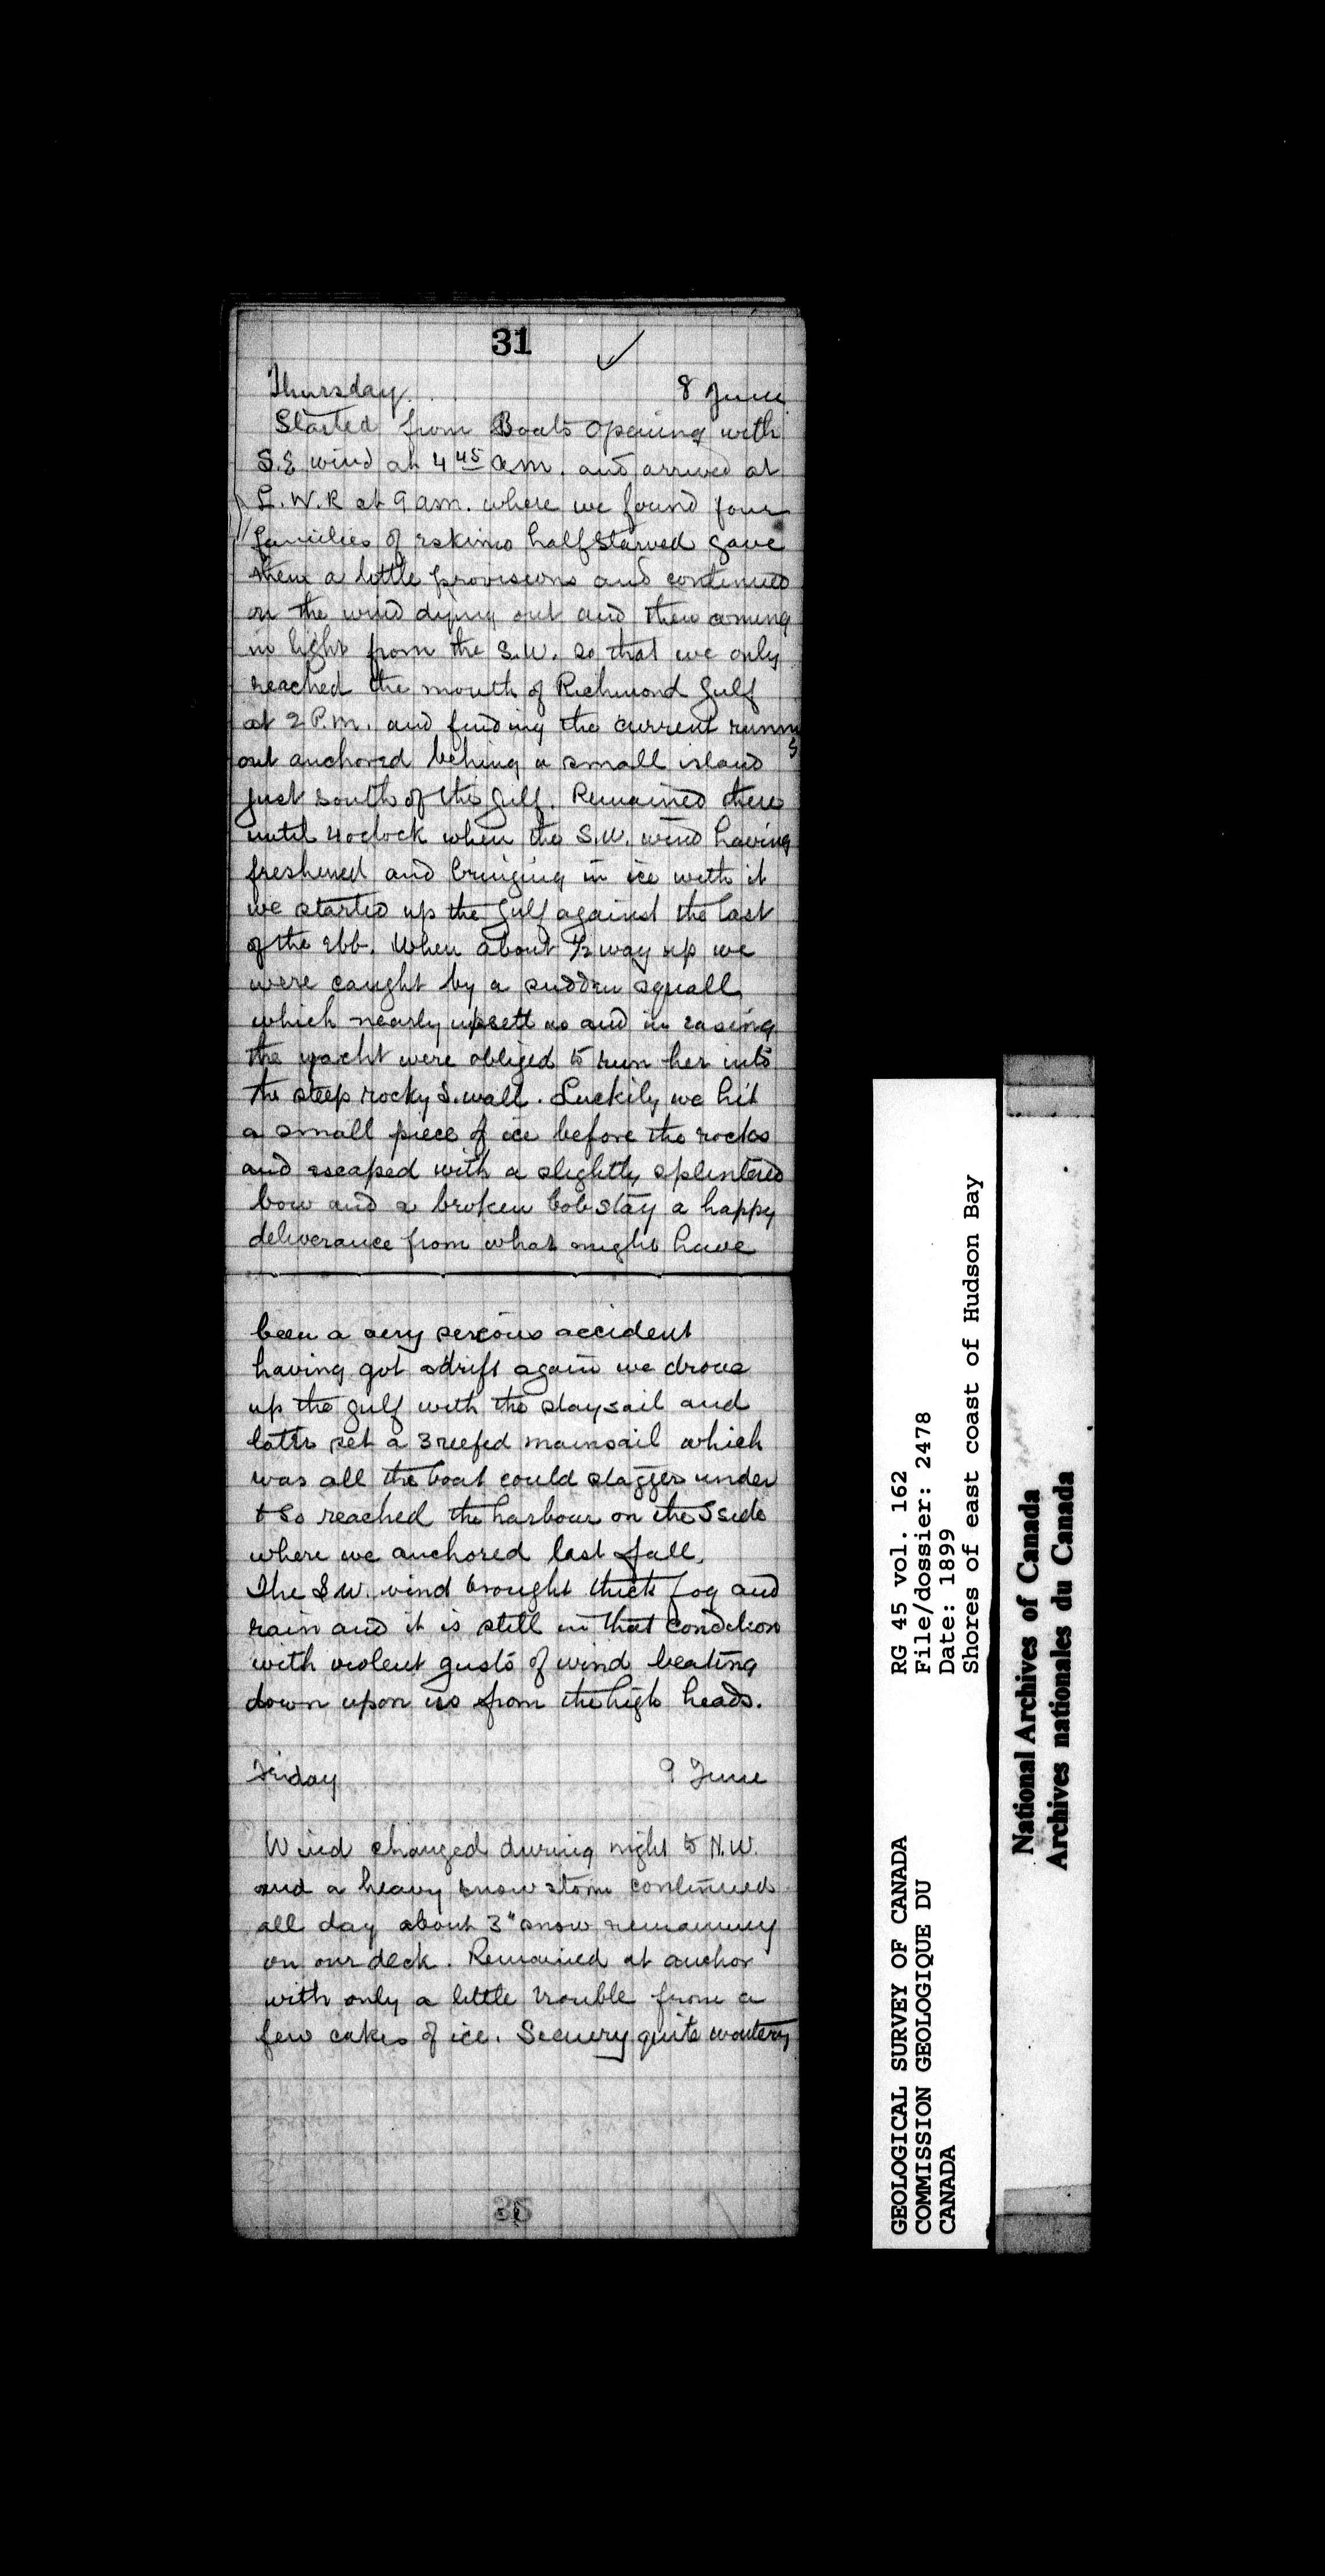 31
Thursday. 8 June
Started from Boats Opening with
S.E wind at 4 45 a.m. and arrived at
L.W.R at 9 am. where we found four
families of eskimo half starved gave
them a little provisions and continued
on the wind dying out and then coming
in light from the S.W. so that we only
reached the mouth of Richmond Gulf
at 2 P.m. and finding the current running
out anchored behing a small island
just south of the gulf. Remained there
until 4 oclock when the S.W. wind having
freshened and bringing in ice with it
we started up the gulf against the last
of the ebb. When about 1/2 way up we
were caught by a sudden squall
which nearly upsett us and in easing
the yacht were obliged to run her into
the steep rocky S. wall. Luckily we hit
a small piece of ice before the rocks
and escaped with a slightly splintered
bow and a broken bobstay a happy
deliverance from what might have
been a very serious accident
having got adrift again we drove
up the gulf with the staysail and
later set a 3 reefed mainsail which
was all the boat could stagger under
& so reached the harbour on the S side
where we anchored last fall.
The S.W. wind brought thick fog and
rain and it is still in that condition
with violent gusts of wind beating
down upon us from the high heads.
Friday 9 June
Wind changed during night to N.W.
and a heavy snow storm continued
all day about 3" snow remaining
on our deck. Remained at anchor
with only a little trouble from a
few cakes of ice. Scenery quite wintery
GEOLOGICAL SURVEY OF CANADA
COMMISSION GEOLOGIQUE DU
CANADA
RG 45 vol. 162
File/dossier: 2478
Date: 1899
Shores of east coast of Hudson Bay
National Archives of Canada
Archives nationales du Canada